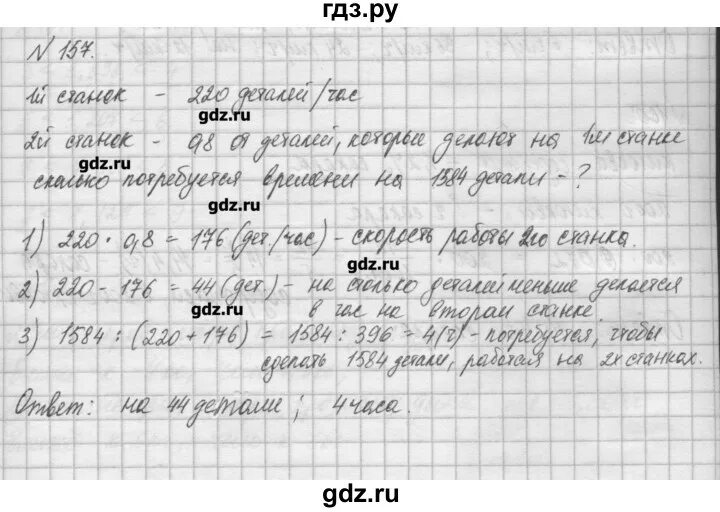 гдз.ру
N 157.
1й станок - 220 деталей/час
gdz.ru
2й станок - 0,8 от деталей, которые делают на 1м станке
gdz.ru
сколько потребуется времени на 1584 детали - ?
gdz.ru
1) 220 · 0,8 = 176 (дет./час) - скорость работы 2го станка.
gdz.ru
2) 220 - 176 = 44 (дет.) - на столько деталей меньше делается
в час на втором станке.
gdz.ru
3) 1584 : (220 + 176) = 1584 : 396 = 4(ч) - потребуется, чтобы
сделать 1584 детали, работая на 2х станках.
Ответ: на 44 детали; 4 часа.
gdz.ru